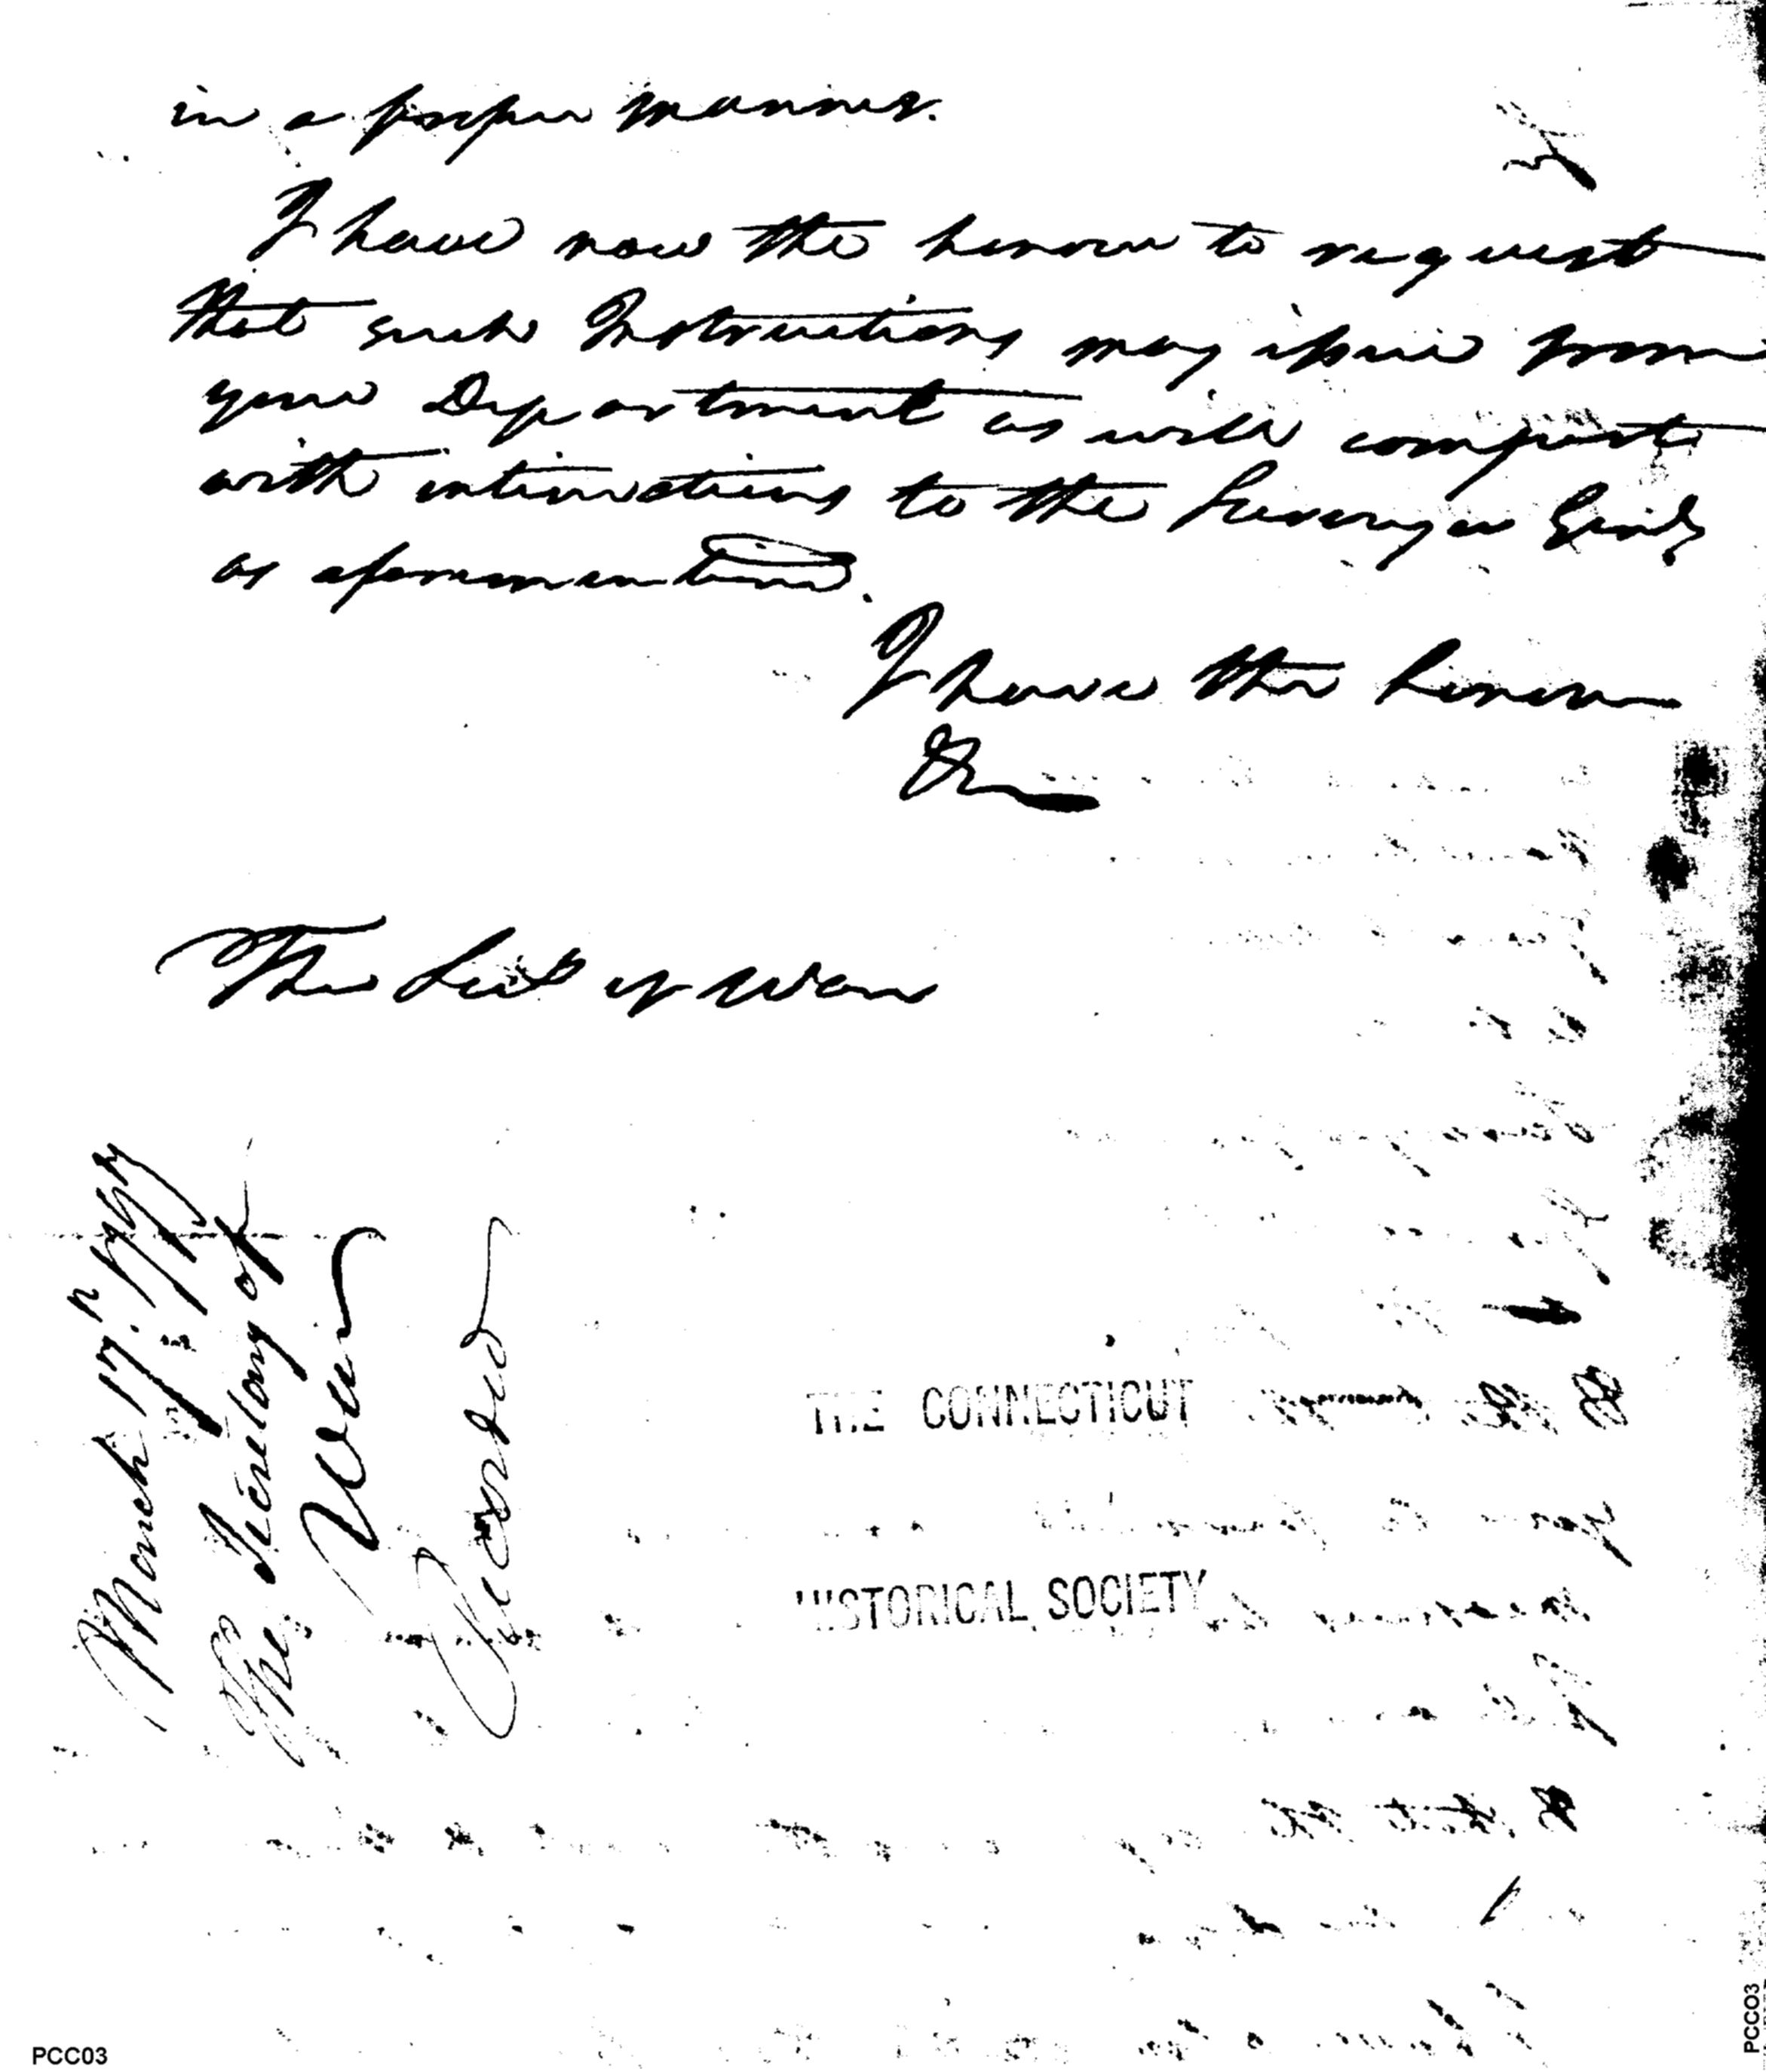 in a proper manner.
I have now the honour to request
that such Instructions may issue from
your Department as will comport
with intimations to the Surveyor Genl,
as aforementiond.
I have the honour
&c
The Secy of War
March 17th. 1797
The Secretary of
War
Recorded
THE CONNECTICUT
HISTORICAL SOCIETY
PCC03
PCC03